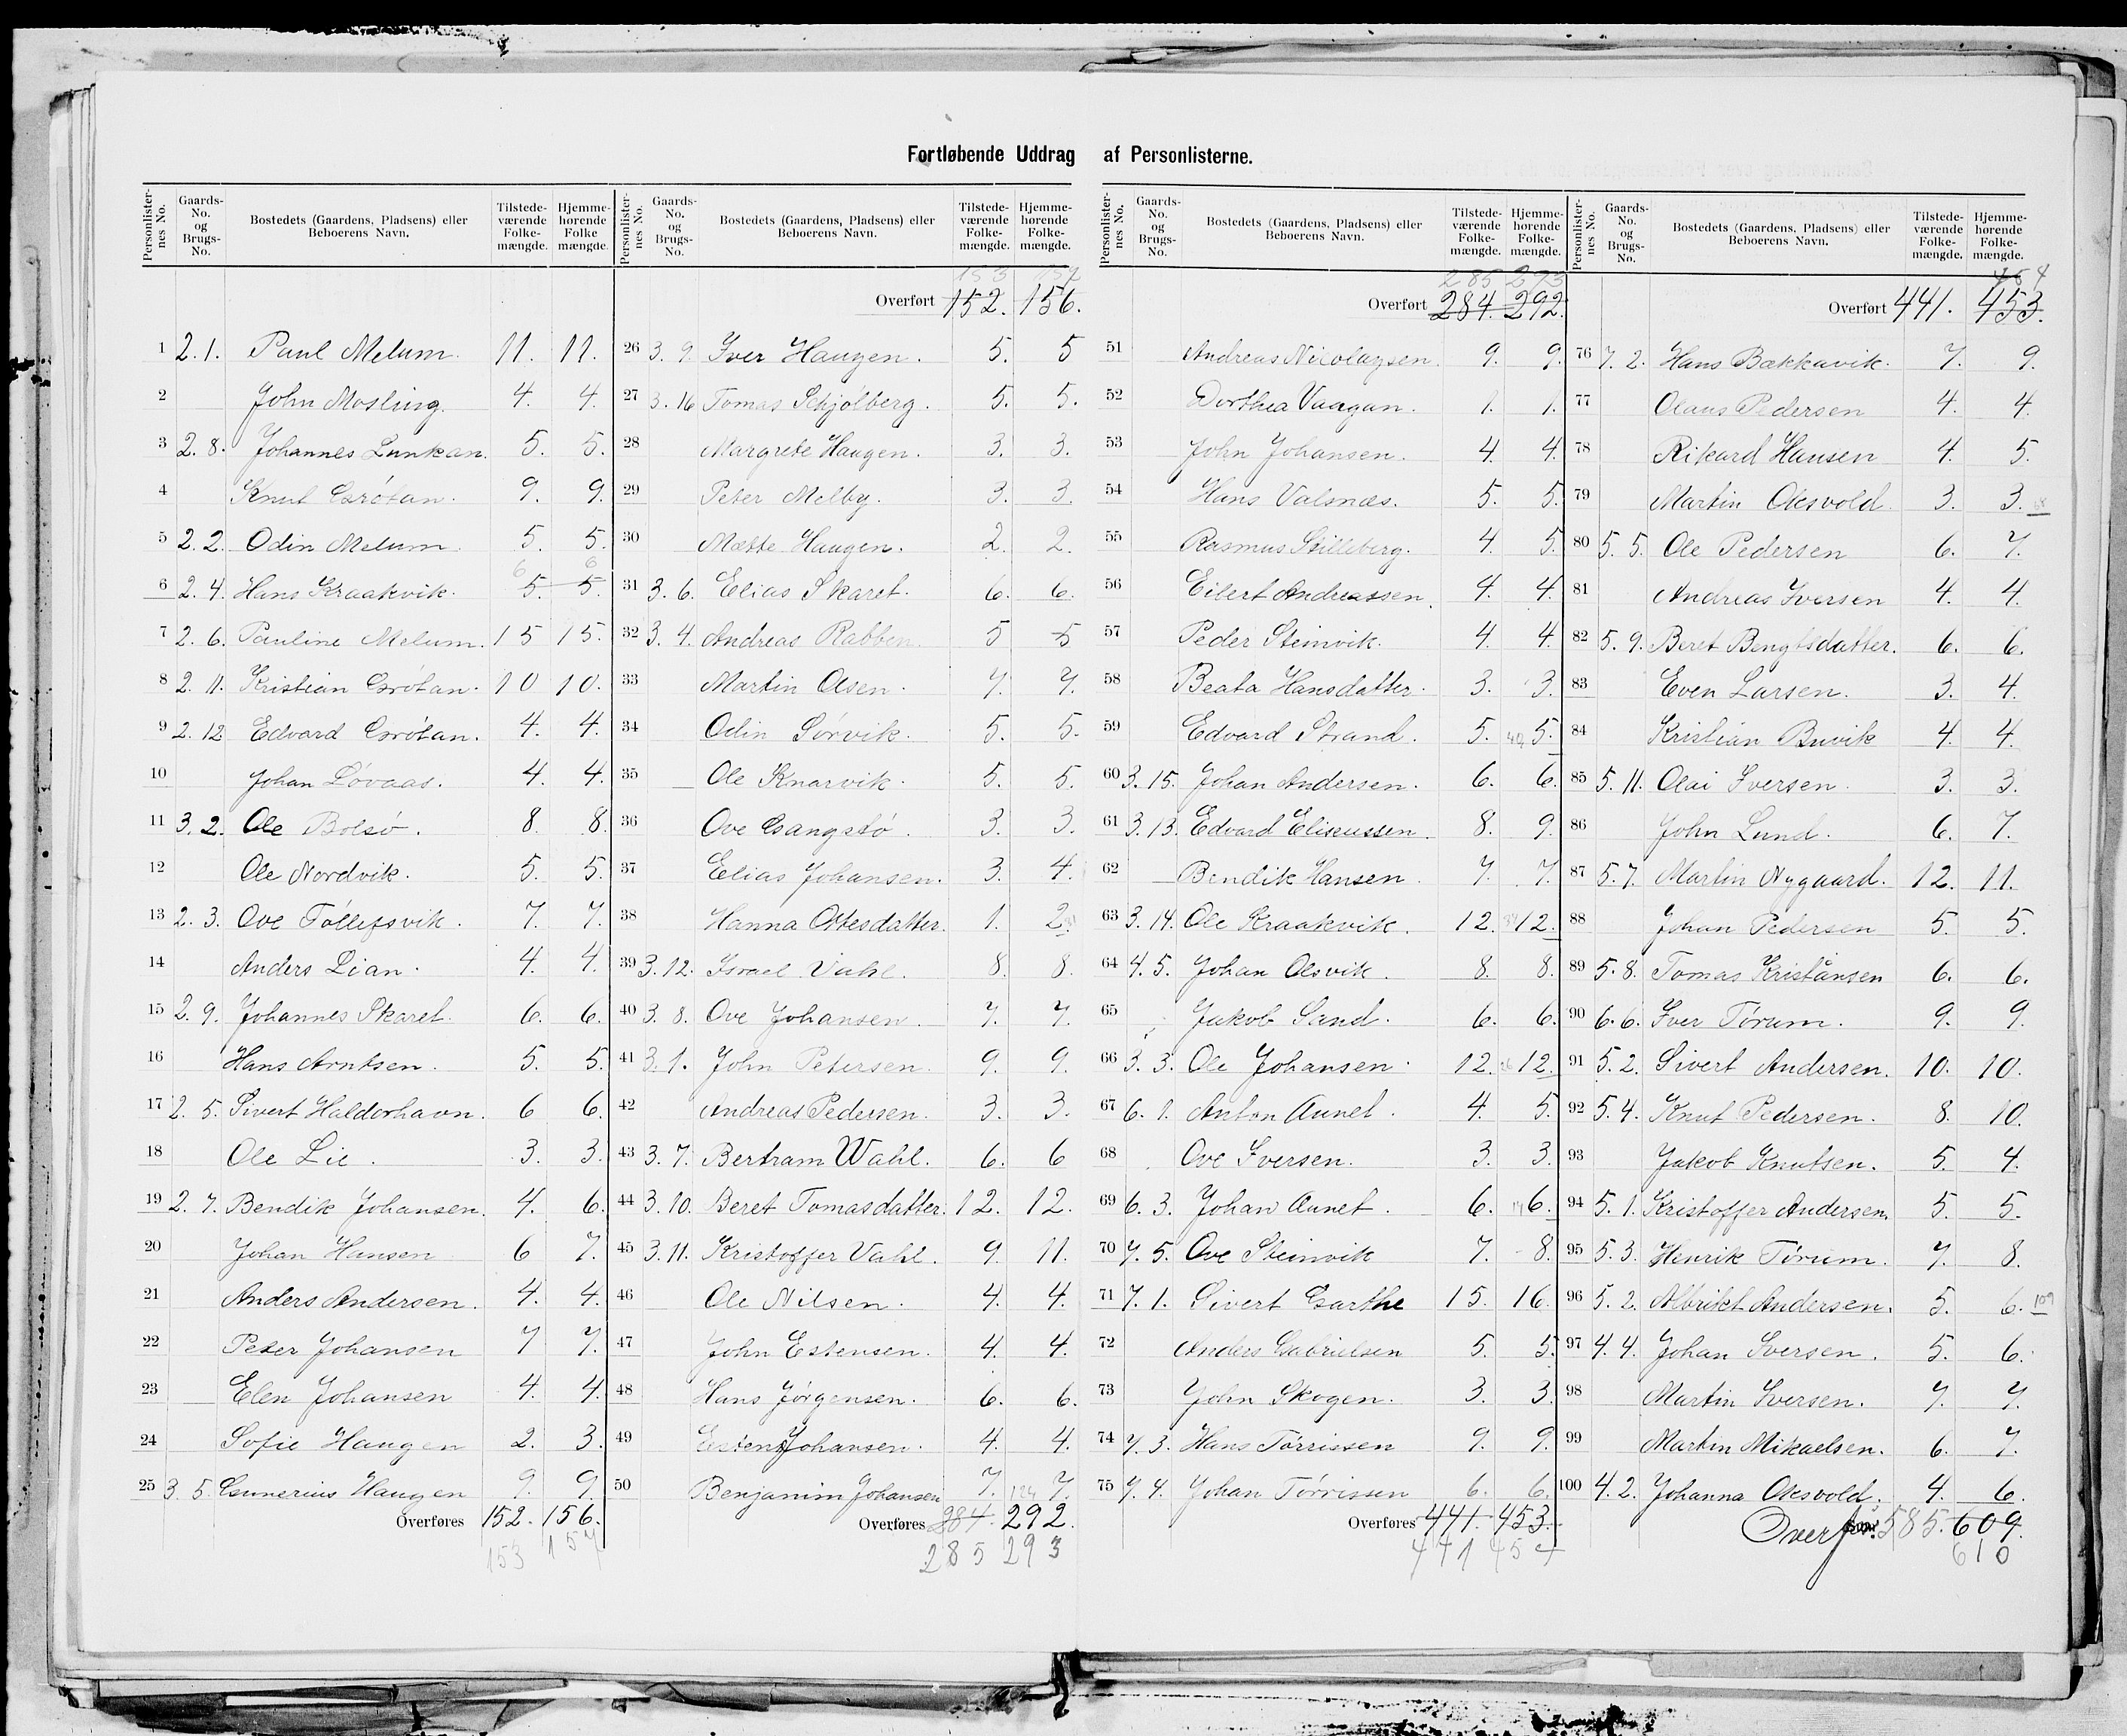 Fortløbende Uddrag af Personlisterne.
Personlister-nes No. Gaards-No. og Brugs-No. Bostedets (Gaardens, Pladsens) eller Beboerens Navn. Tilstede-værende Folke-mængde. Hjemme-hørende Folke mængde.
1 2. 1. Paul Melum. 11. 11.
2 John Mosling. 4. 4.
3 2. 8. Johannes Lunkan. 5. 5.
4 Knut Grötan. 9. 9.
5 2. 2. Odin Melum. 5. 5.
6 6
6 2. 4. Hans Kraakvik. 5. 5.
7 2. 6. Pauline Melum. 15 15.
8 2. 11. Kristian Grötan. 10 10.
9 2. 12 Edvard Grötan. 4. 4.
10 Johan Lövaas. 4. 4.
11 3. 2. Ole Bolsö. 8. 8.
12 Ole Nordvik. 5. 5.
13 2. 3. Ove Töllefsvik. 7. 7.
14 Anders Lian. 4. 4.
15 2. 9. Johannes Skaret. 6. 6.
16 Hans Arntsen. 5. 5.
17 2. 5. Sivert Halderhavn. 6 6.
18 Ole Lie. 3. 3.
19 2. 7. Bendik Johansen. 4. 6.
20 Johan Hansen 6 7.
21 Anders Andersen. 4. 4.
22 Peter Johansen 7 7.
23 Elen Johansen 4. 4.
24 Sofie Haugen 2. 3.
25 3. 5. Gunerius Haugen 9. 9.
Overføres 152. 156.
153 157
Personlister-nes No. Gaards-No. og Brugs-No. Bostedets (Gaardens, Pladsens) eller Beboerens Navn. Tilstede-værende Folke-mængde. Hjemme-hørende Folke-mængde.
153 157
Overført 152. 156.
26 3. 9. Iver Haugen. 5. 5
27 3. 16 Tomas Schjölberg. 5. 5.
28 Margrete Haugen. 3. 3.
29 Peter Melby. 3. 3.
30 Mætte Haugen. 2. 2.
31 3. 6. Elias Skaret. 6. 6.
32 3. 4. Andreas Rabben. 5 5
33 Martin Olsen. 7. 7.
34 Odin Sörvik. 5. 5.
35 Ole Knarvik. 5. 5.
36 Ove Gangstö. 3. 3.
37 Elias Johansen. 3. 4.
38 Hanna Ottesdatter. 1. 2.
39 3. 12. Israel Vahl. 8. 8.
40 3. 8. Ove Johansen. 7. 7.
41 3. 1. John Petersen. 9. 9.
42 Andreas Pedersen. 3. 3.
43 3. 7. Bertram Wahl. 6. 6
44 3. 10. Beret Tomasdatter. 12. 12.
45 3. 11. Kristoffer Vahl. 9. 11.
46 Ole Nilsen. 4. 4.
47 John Estensen. 4. 4.
48 Hans Jörgensen. 6. 6.
49 Esten Johansen. 4. 4.
50 Benjamin Johansen 7. 7.
Overføres 284. 292.
285 293
Personlister-nes No. Gaards-No. og Brugs-No. Bostedets (Gaardens, Pladsens) eller Beboerens Navn. Tilstede-værende Folke-mængde. Hjemme-hørende Folke-mængde.
285 293
Overført 284. 292.
51 Andreas Nicolaysen. 9. 9.
52 Dorthea Vaagan. 1. 1.
53 John Johansen. 4. 4.
54 Hans Valsnæs. 5. 5.
55 Rasmus Stilleberg. 4. 5.
56 Eilert Andreassen. 4. 4.
57 Peder Steinvik. 4. 4.
58 Beata Hansdatter. 3. 3.
59 Edvard Strand. 5. 5.
60 3. 15. Johan Andersen. 6. 6.
61 3. 13. Edvard Eliseussen. 8. 9.
62 Bendik Hansen. 7. 7.
63 3. 14. Ole Kraakvik. 12. 12.
64 4. 5. Johan Olsvik. 8. 8.
65 Jakob Sand. 6. 6.
66 3. 3. Ole Johansen. 12. 12.
67 6. 1. Anton Aunet. 4. 5.
68 Ove Iversen. 3. 3.
69 6. 3. Johan Aunet. 6. 6.
70 7. 5. Ove Steinvik 7. 8.
71 7. 1. Sivert Garthe 15. 16.
72 Anders Gabrielsen 5. 5.
73 John Skogen. 3. 3.
74 7. 3. Hans Törrissen 9. 9.
75 7. 4. Johan Törrissen 6. 6.
Overføres 441. 453.
441 454
Personlister-nes No. Gaards-No. og Brugs-No. Bostedets (Gaardens, Pladsens) eller Beboerens Navn. Tilstede-værende Folke-mængde. Hjemme-hørende Folke-mængde.
454
Overført 441. 453.
76 7. 2. Hans Bækkavik. 7. 9.
77 Olaus Pedersen 4. 4.
78 Rikard Hansen 4. 5.
79 Martin Oksvold. 3. 3.
80 5. 5. Ole Pedersen 6. 7.
81 Andreas Iversen 4. 4.
82 5. 9. Beret Bengtsdatter. 6. 6.
83 Even Larsen. 3. 4.
84 Kristian Buvik 4. 4.
85 5. 11. Olai Iversen. 3. 3.
86 John Lund. 6. 7.
87 5. 7. Martin Nygaard. 12. 11.
88 Johan Pedersen 5. 5.
89 5. 8. Tomas Kristiansen 6. 6.
90 6. 6. Iver Törum. 9. 9.
91 5. 2. Sivert Andersen. 10. 10.
92 5. 4. Knut Pedersen. 8. 10.
93 Jakob Knutsen. 5. 4.
94 5. 1. Kristoffer Andersen. 5. 5.
95 5. 3. Henrik Törum. 7. 8.
96 5. 2. Albrikt Andersen. 5. 6. 109
97 4. 4. Johan Iversen. 5. 6.
98 Martin Iversen. 7. 7.
99 Martin Mikaelsen. 6. 7.
100 4. 2. Johanna Oksvold. 4. 6.
Overf. 585. 609.
610